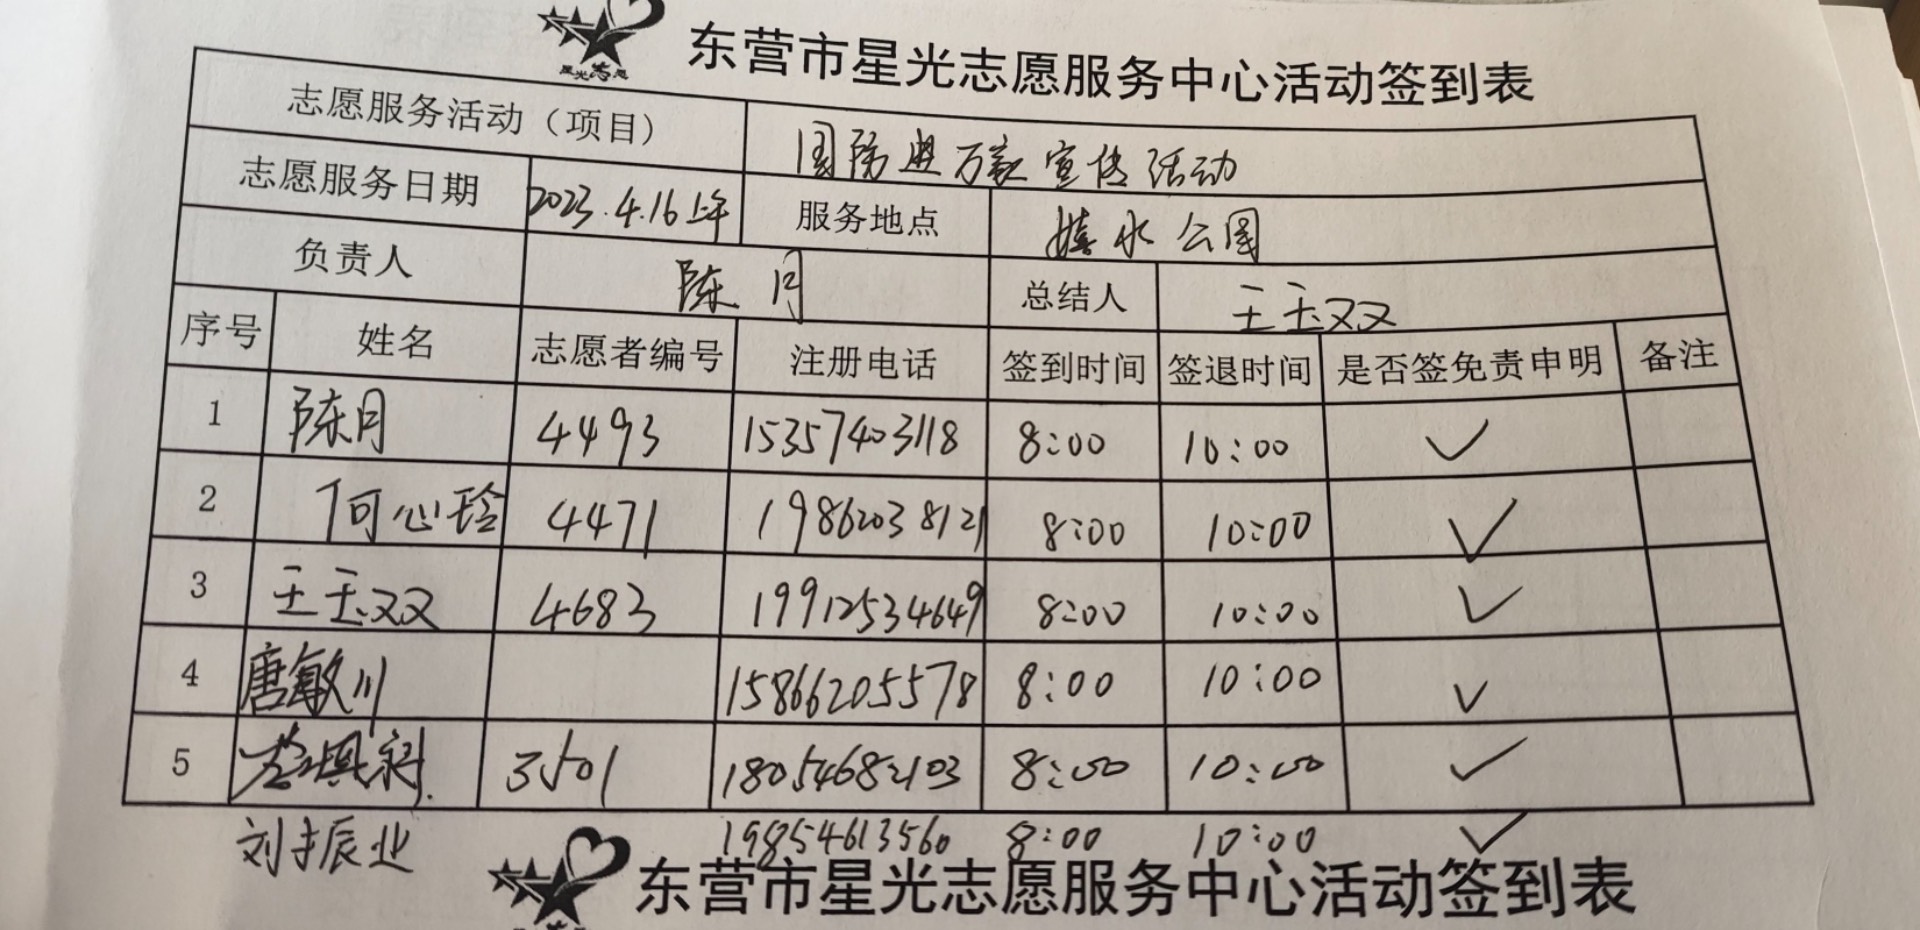 星光志愿
东营市星光志愿服务中心活动签到表
志愿服务活动（项目） 国防进万家宣传活动
志愿服务日期 2023.4.16上午 服务地点 嬉水公园
负责人 陈月 总结人 王玉双
序号 姓名 志愿者编号 注册电话 签到时间 签退时间 是否签免责申明 备注
1 陈月 4493 15357403118 8:00 10:00 ✓
2 何心玲 4471 19862038121 8:00 10:00 ✓
3 王玉双 4683 19912534649 8:00 10:00 ✓
4 唐敏川 15866205578 8:00 10:00 ✓
5 3501 18054682103 8:00 10:00 ✓
刘振业 19854613560 8:00 10:00 ✓
东营市星光志愿服务中心活动签到表